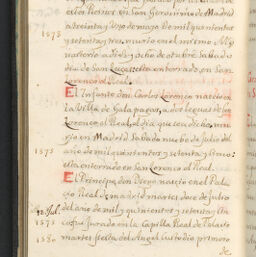 estos Reinos en San Geronimo de Madrid
a treinta y Uno de mayo de mil quinientos
1573 y setenta y tres, murio en el mismo
Monasterio a diez y ocho de otubre sabado
dia de San Lucas esta enterrado en San
Lorenco el Real.
El Infante don Carlos Lorenco nacio en
la Villa de Galapagar, a dos leguas de San
Lorenco el Real, al dia que sea dicho, mu
rio en Madrid Sabado nuebe de julio del
1575 año de mil quinientos y setenta y cinco:
esta enterrado en San Lorenco el Real.
El Principe don Diego nacio en el Pala
cio Real de madrid martes doce de julio
12 Jul. del año de mil y quinientos y setenta y
1575
en la Capilla Real de Palacio
1580 martes fiesta del Angel Custodio primero
de